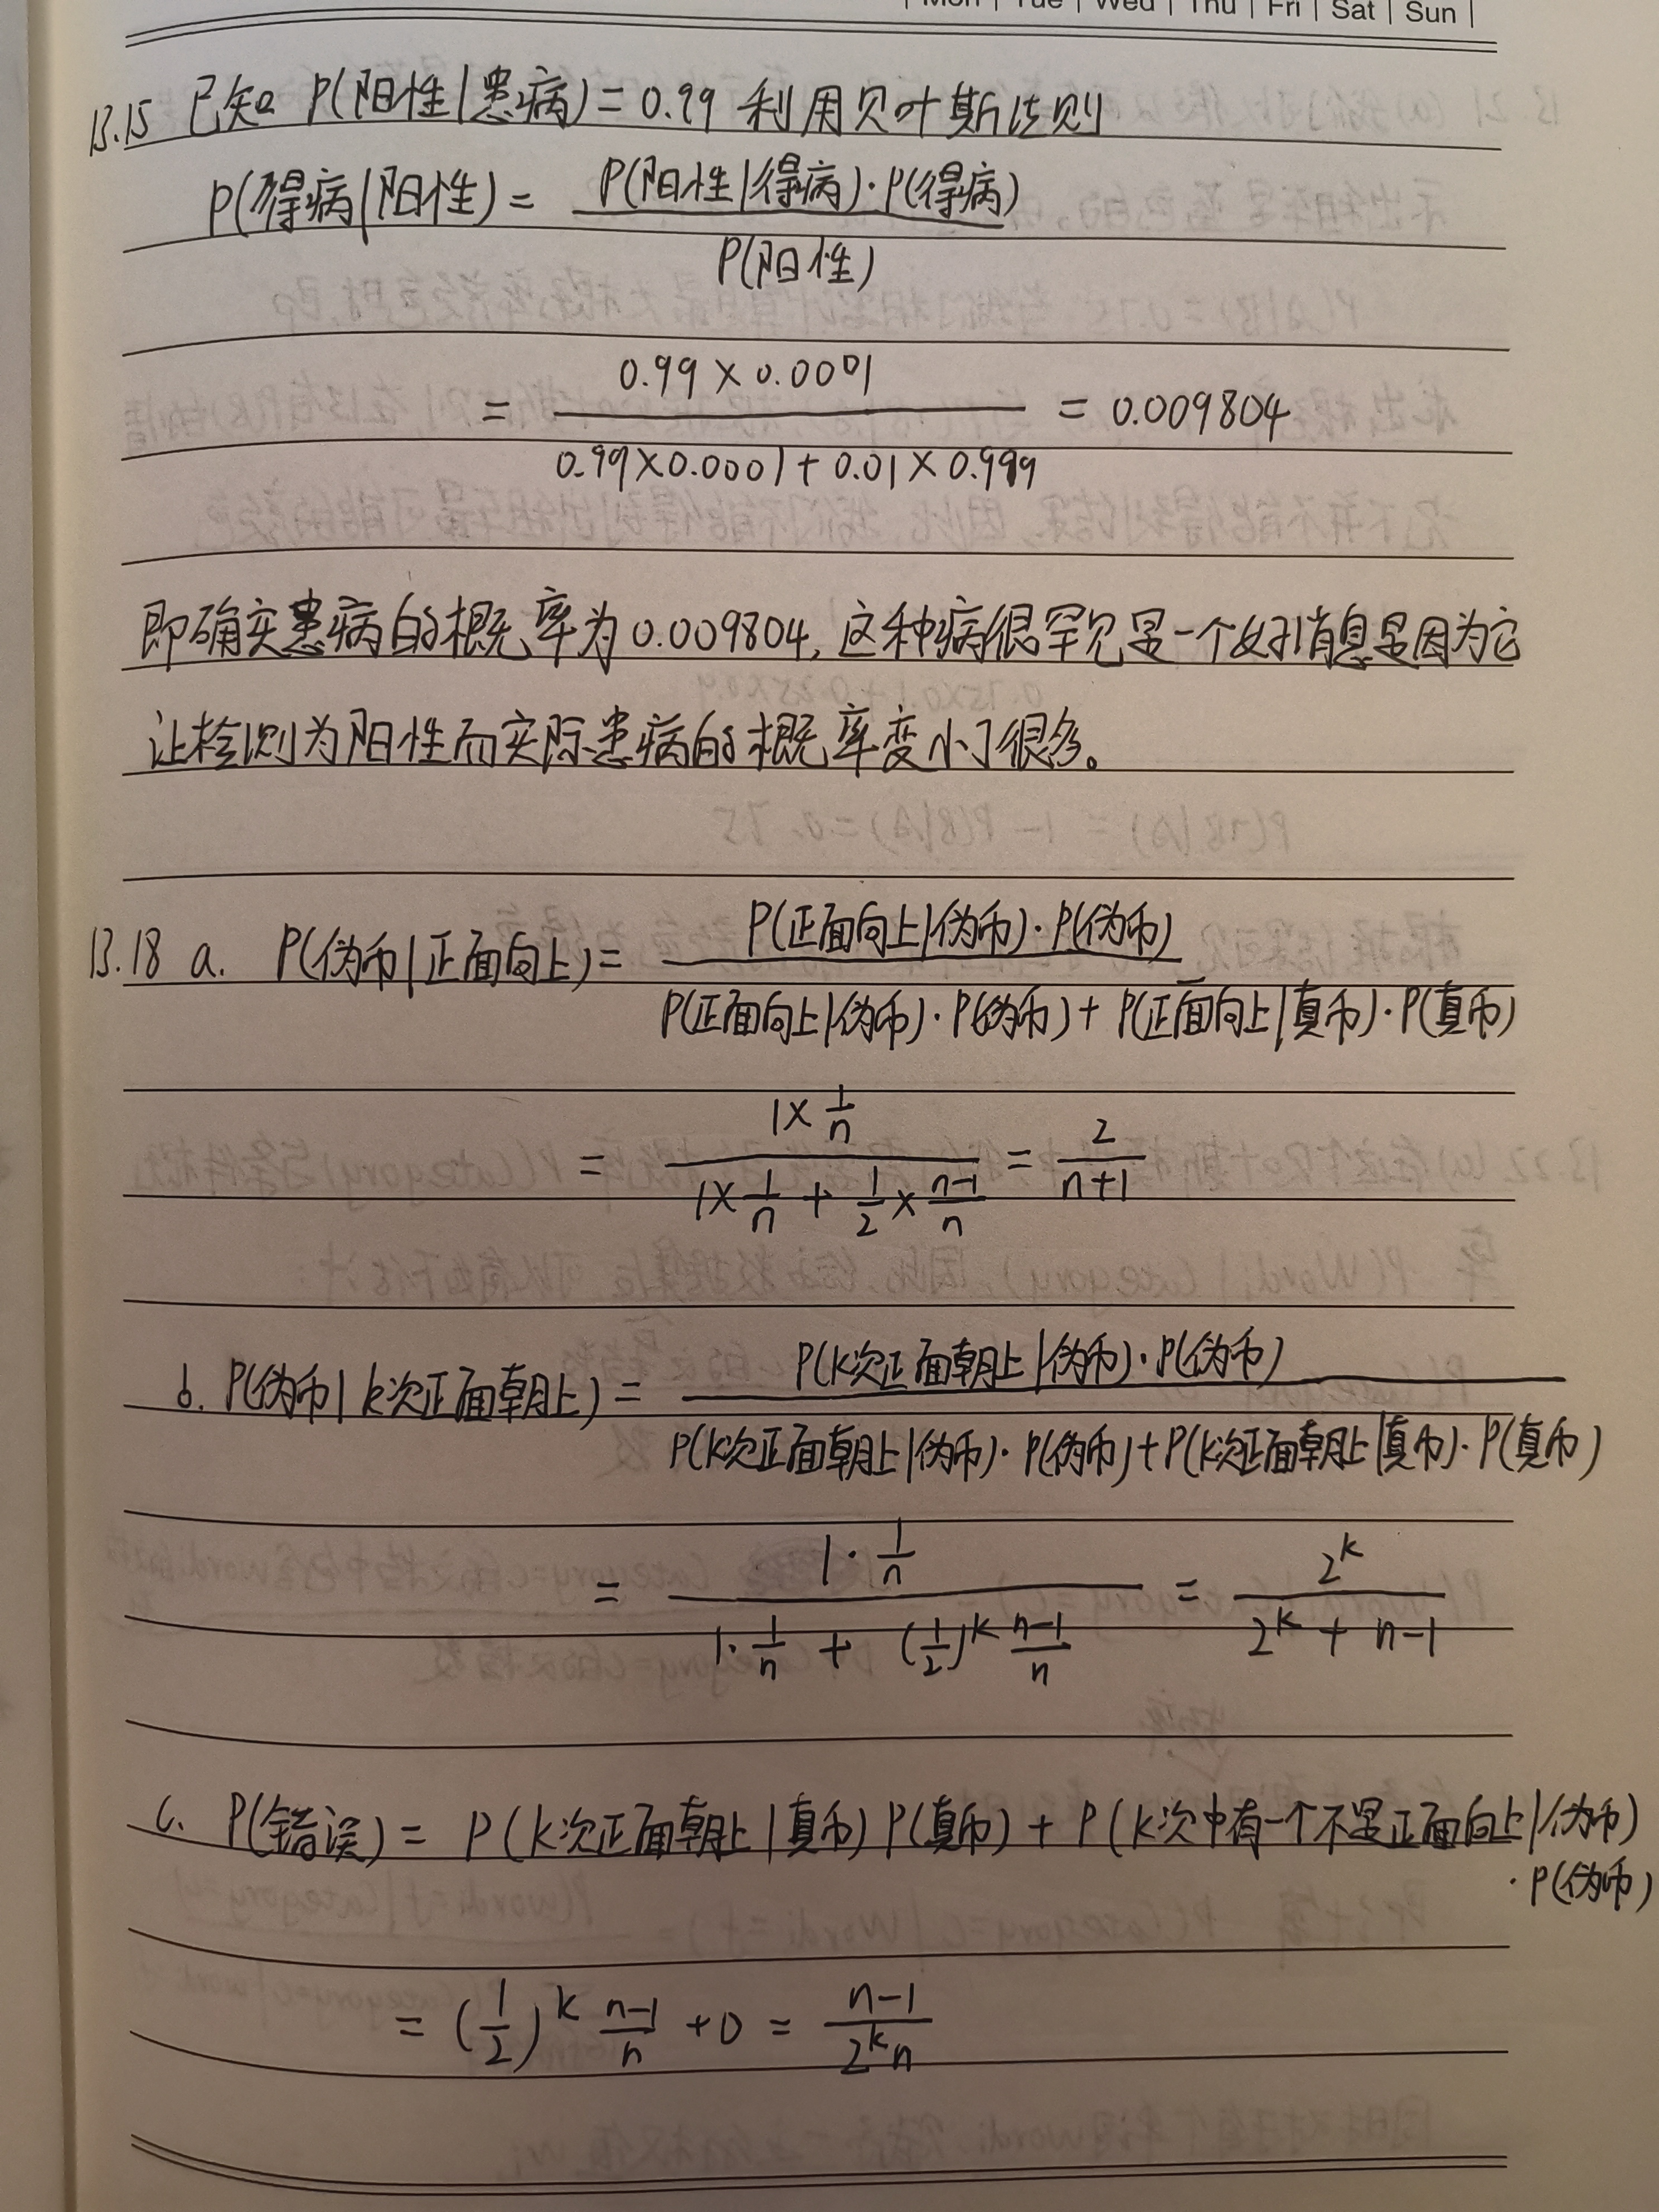 | Mon | Tue | Wed | Thu | Fri | Sat | Sun |
13.15 已知 P(阳性|患病)=0.99 利用贝叶斯法则
P(得病|阳性) = P(阳性|得病)·P(得病)
P(阳性)
= 0.99 × 0.0001 = 0.009804
0.99×0.0001+0.01×0.999
即确实患病的概率为0.009804,这种病很罕见是一个好消息是因为它
让检测为阳性而实际患病的概率变小了很多。
13.18 a. P(伪币|正面向上)= P(正面向上|伪币)·P(伪币)
P(正面向上|伪币)·P(伪币)+P(正面向上|真币)·P(真币)
= 1×1/n / (1×1/n + 1/2×(n-1)/n) = 2/(n+1)
b. P(伪币|k次正面朝上) = P(k次正面朝上|伪币)·P(伪币)
P(k次正面朝上|伪币)·P(伪币)+P(k次正面朝上|真币)·P(真币)
= 1·1/n / (1·1/n + (1/2)^k (n-1)/n) = 2^k / (2^k + n-1)
c. P(错误) = P(k次正面朝上|真币)P(真币) + P(k次中有一个不是正面向上|伪币)
·P(伪币)
= (1/2)^k (n-1)/n +0 = (n-1)/(2^k n)